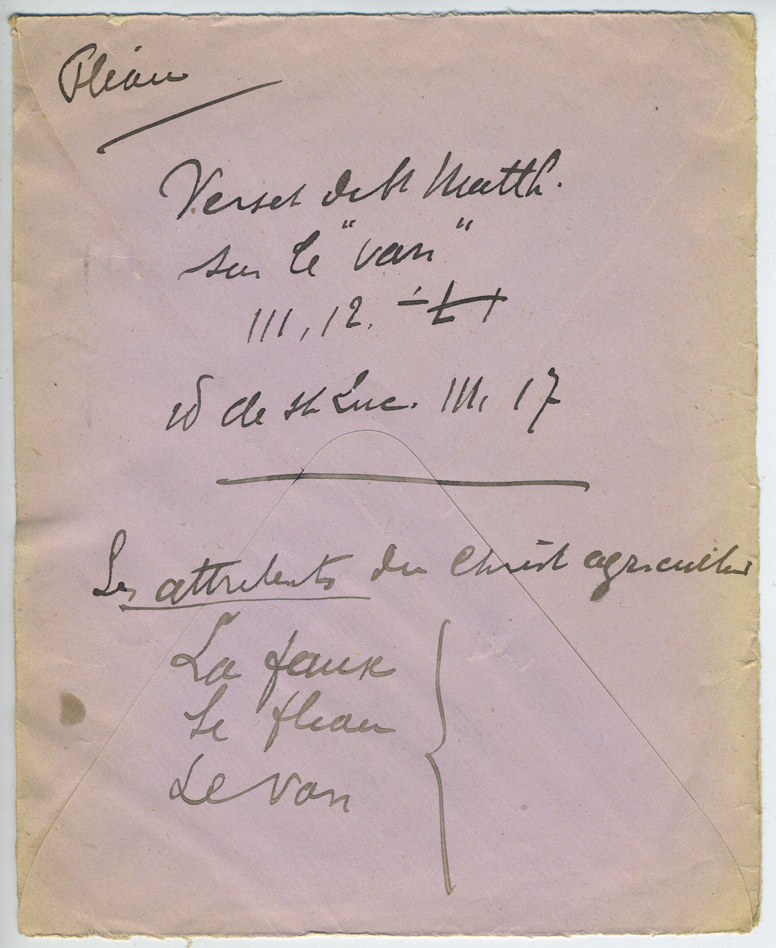 Fléau
Verset de St Matth.
sur le "van"
III, 12.
id de St Luc. III, 17
Les attributs du Christ agriculteur
La faux
Le fléau
Le Van